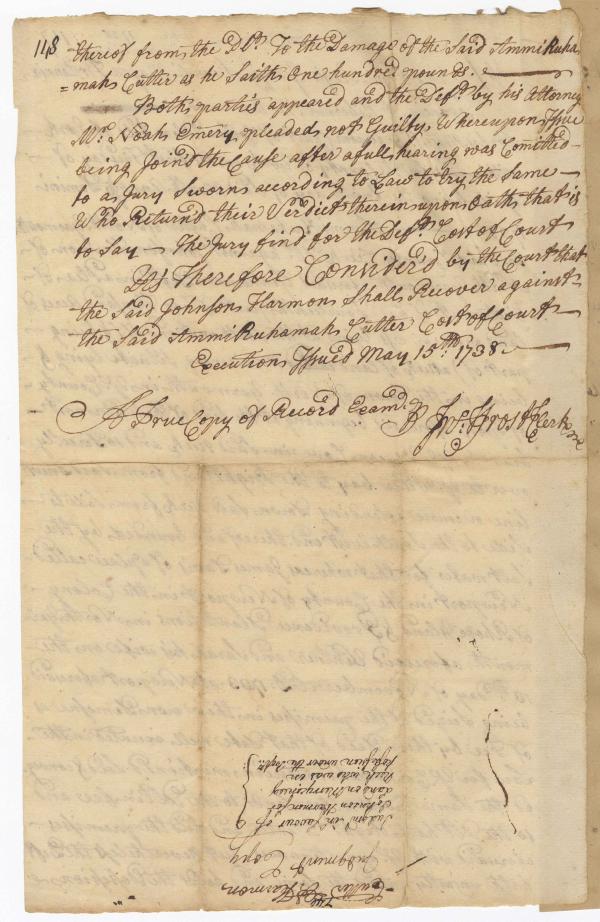 118
thereof from the Plt. To the Damage of the Said AmmiRuha,
=mah Cutter as he Saith One hundred pounds.
Both parties appeared and the Deft. by his Attorney
Mr. Noah Emery pleaded not Guilty, Whereupon Issue
being Joind the Cause after a full hearing was Comitted
to a Jury Sworn according to Law to try the Same
Who Returnd their Verdict therein upon Oath, that is
to Say — The Jury find for the Deft. Cost of Court
It's Therefore Consider'd by the Court that
the Said Johnson Harmon Shall Recover against
the Said AmmiRuhamah Cutter Cost of Court
Execution Issued May 15th. 1738.
A True Copy of Record Examd. P Jos. Frost Cler
Cutter vs Harmon
Judgment Copy
Judgmt. in favour of
Johnson Harmon for
Land on Merryconeg
Neck who was in
possession under the